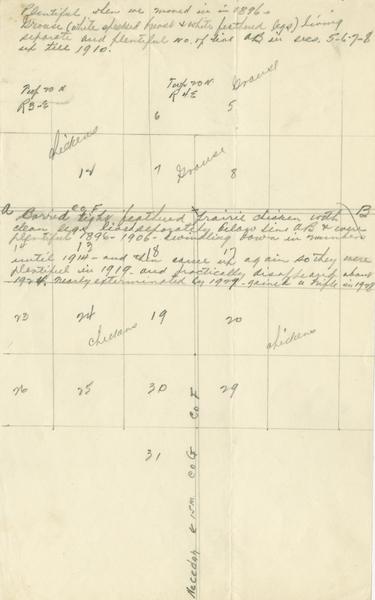 Plentiful, when we moved in in 1896.
Grouse (white specked breast & white feathered legs) living
separate and plentiful no. of line AB in secs. 5-6-7-8
up till 1910.
Twp 20 N
R3-E
Twp 20 N.
R4E
Grouse
6
5
chickens
12
7
Grouse
8
Co F
A
B
Barred tight feathered prairie chicken with
clean legs lived separately below line AB & were
plentiful 1896-1906 - dwindling down in numbers
13
18
17
until 1914 - and then came up again so they were
plentiful in 1919 and practically disappearing about
1924, nearly exterminated by 1927 - gained a trifle in 1928
23
24
chickens
19
20
chickens
26
25
30
29
31
Necedah & 15 m Co G Co F